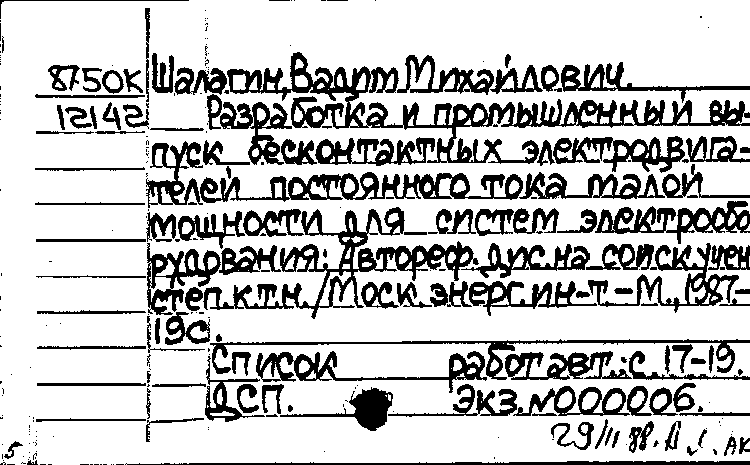 87.50К Шалагин, Вадим Михайлович.
12142 Разработка и промышленный вы-
пуск бесконтактных электродвига-
телей постоянного тока малой
мощности для систем электрообо
рудования: Автореф. дис. на соиск. учен
степ. к.т.н. / Моск. энерг. ин-т. – М., 1987.–
19с.
Список работ авт.: с. 17-19.
ДСП. Экз. №000006.
29/II 88.
5 АК